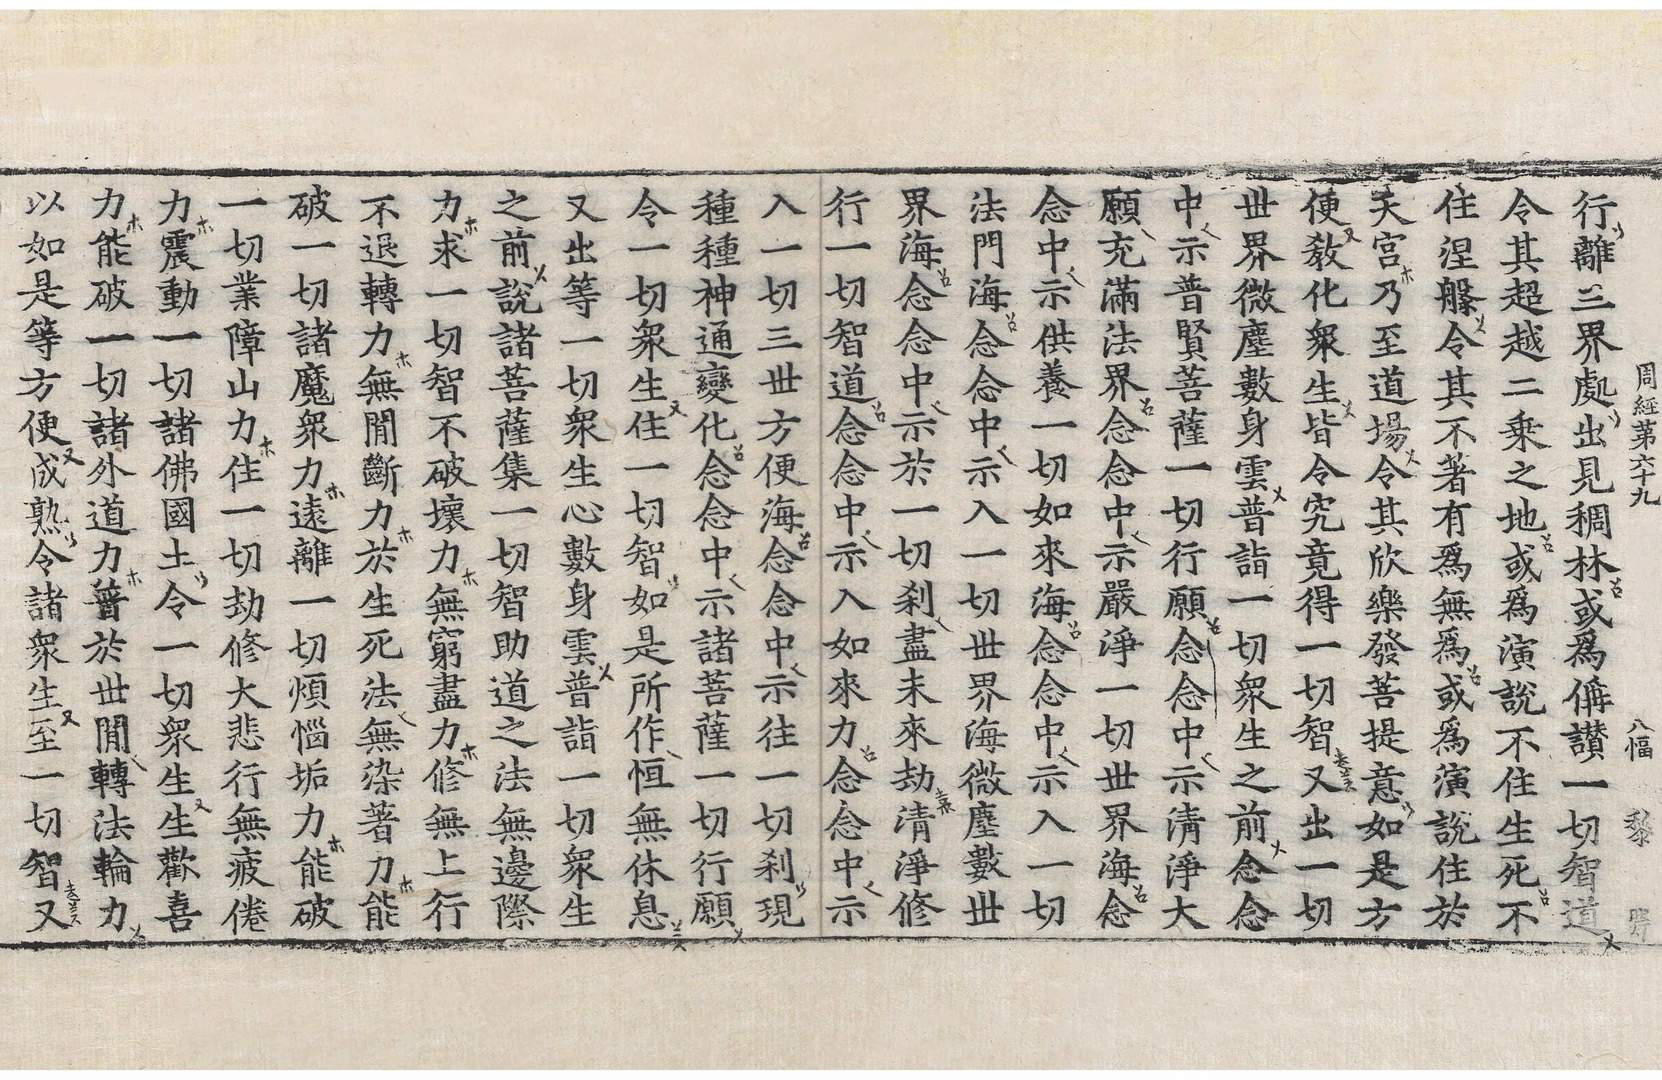 周經第六十九 八幅 黎
行離三界處出見稠林或爲偁讃一切智道
令其超越二乗之地或爲演說不住生死不
住涅槃令其不著有爲無爲或爲演說住於
天宮乃至道場令其欣樂發菩提意如是方
便教化衆生皆令究竟得一切智又出一切
世界微塵數身雲普詣一切衆生之前念念
中示普賢菩薩一切行願念念中示清淨大
願充滿法界念念中示嚴淨一切世界海念
念中示供養一切如來海念念中示入一切
法門海念念中示入一切世界海微塵數世
界海念念中示於一切刹盡未來劫清淨修
行一切智道念念中示入如來力念念中示
入一切三世方便海念念中示往一切刹現
種種神通變化念念中示諸菩薩一切行願
令一切衆生住一切智如是所作恒無休息
又出等一切衆生心數身雲普詣一切衆生
之前說諸菩薩集一切智助道之法無邊際
力求一切智不破壞力無窮盡力修無上行
不退轉力無閒斷力於生死法無染著力能
破一切諸魔衆力遠離一切煩惱垢力能破
一切業障山力住一切劫修大悲行無疲倦
力震動一切諸佛國土令一切衆生生歡喜
力能破一切諸外道力普於世閒轉法輪力
以如是等方便成熟令諸衆生至一切智又